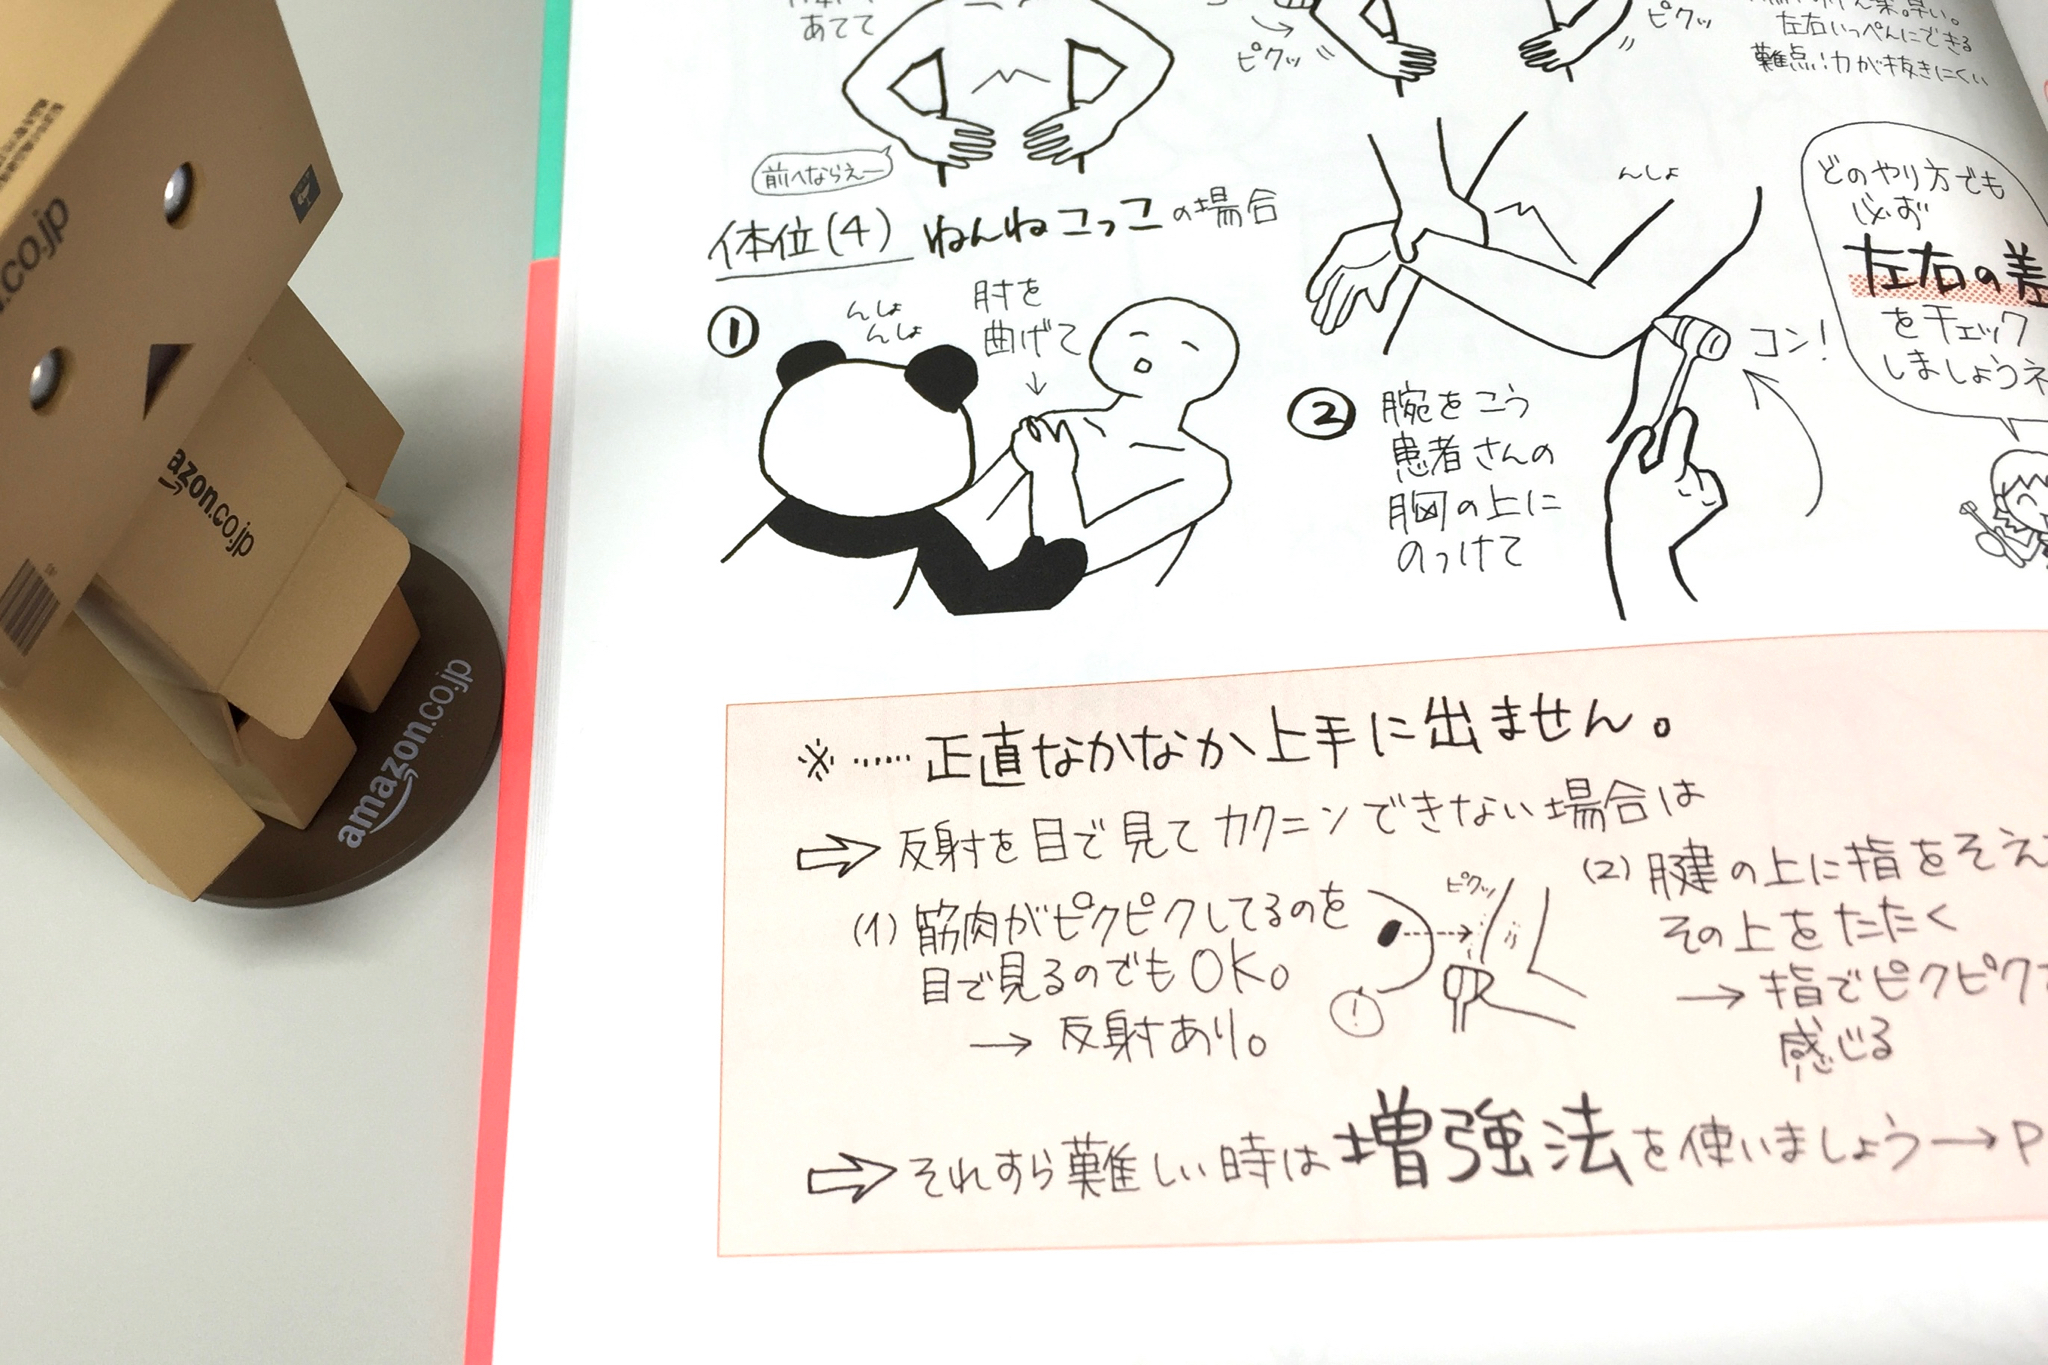 あてて
ピクッ
ピクッ
左右いっぺんにできる
難点！力が抜きにくい
前へならえー
体位(4) ねんねこっこの場合
①
んしょ
んしょ
肘を
曲げて
んしょ
コン！
②
腕をこう
患者さんの
胸の上に
のっけて
どのやり方でも
必ず
左右の差
をチェック
しましょうネ
※……正直なかなか上手に出ません。
⇨反射を目で見てカクニンできない場合は
(1)筋肉がピクピクしてるのを
目で見るのでもOK。
→反射あり。
ピクッ
!
(2)腱の上に指をそえ
その上をたたく
→指でピクピク
感じる
⇨それすら難しい時は増強法を使いましょう→P
.co.jp
azon.co.jp
amazon.co.jp